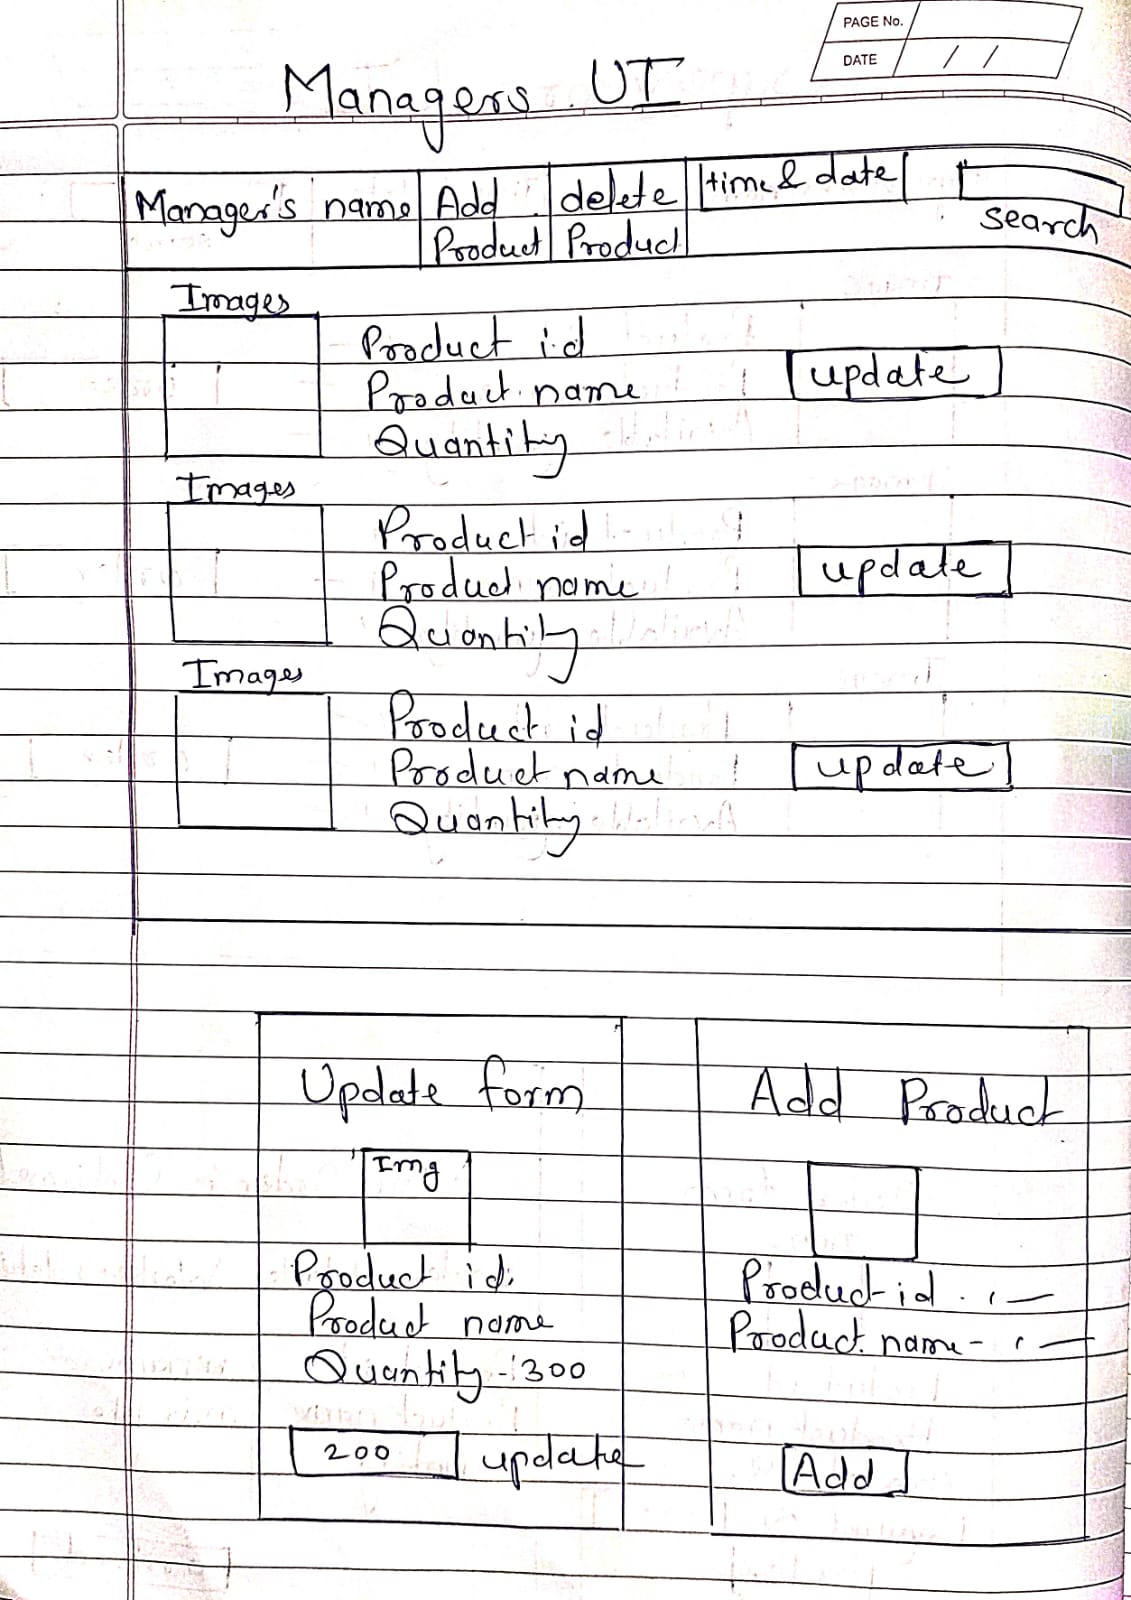 PAGE No.
DATE / /
Managers UI
Manager's name Add Product delete Product time & date search
Images
Product id
Product name
Quantity
update
Images
Product id
Product name
Quantity
update
Images
Product id
Product name
Quantity
update
Update form
Img
Product id
Product name
Quantity - 300
200 update
Add Product
Product id
Product name -
Add